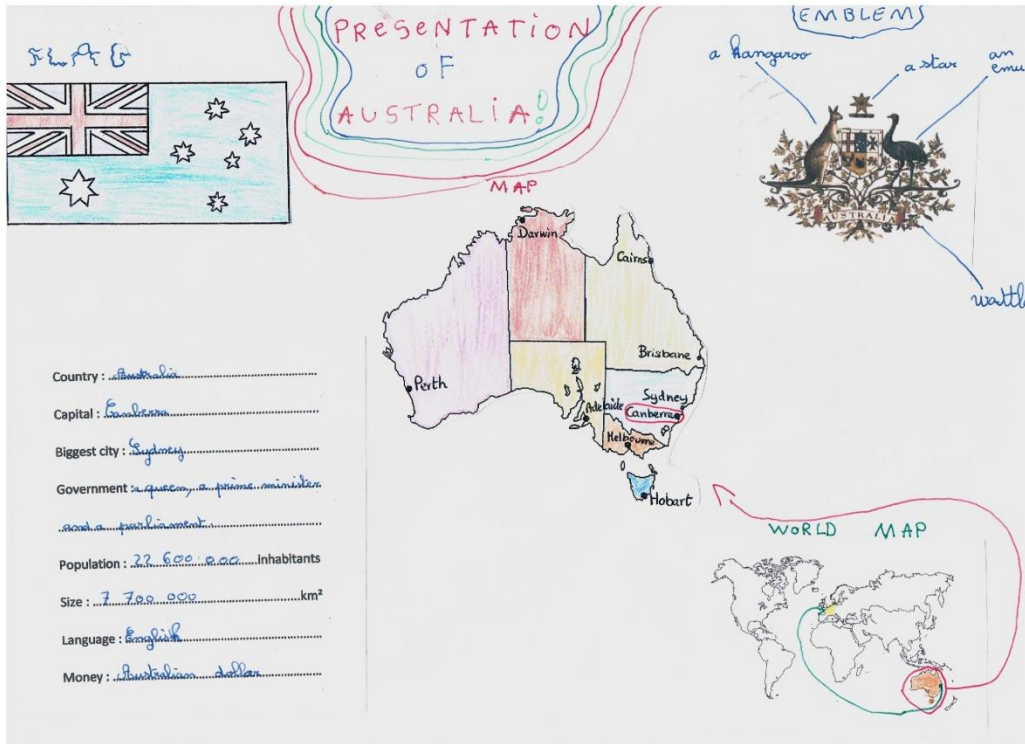 PRESENTATION
OF
AUSTRALIA!
EMBLEM
a kangaroo
a star
an
emu
AUSTRALIA
wattl
MAP
Darwin
Cairns
Brisbane
Perth
Sydney
Adelaide
Canberra
Melbourne
Hobart
Country : Australia
Capital : Canberra
Biggest city : Sydney
Government : a queen, a prime minister
and a parliament.
Population : 22 600 000 inhabitants
Size : 7 700 000 km²
Language : English
Money : Australian dollar
WORLD MAP